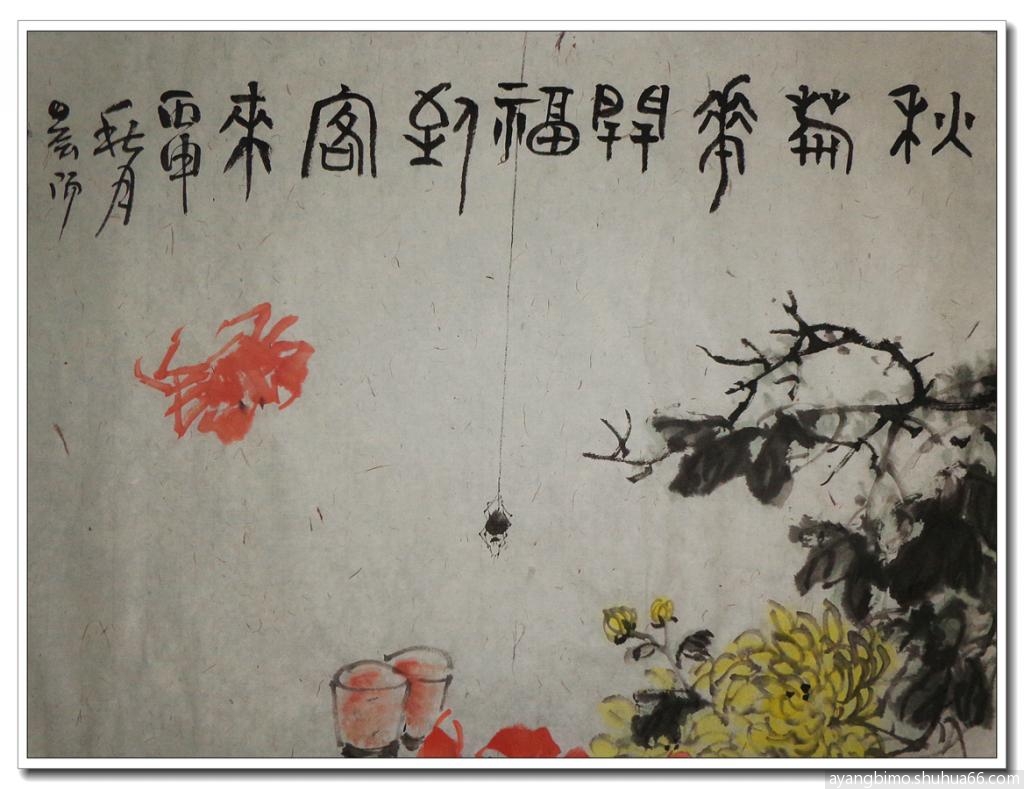 秋菊華開福到客來
丙申
秋月
晨
ayangbimo.shuhua66.com